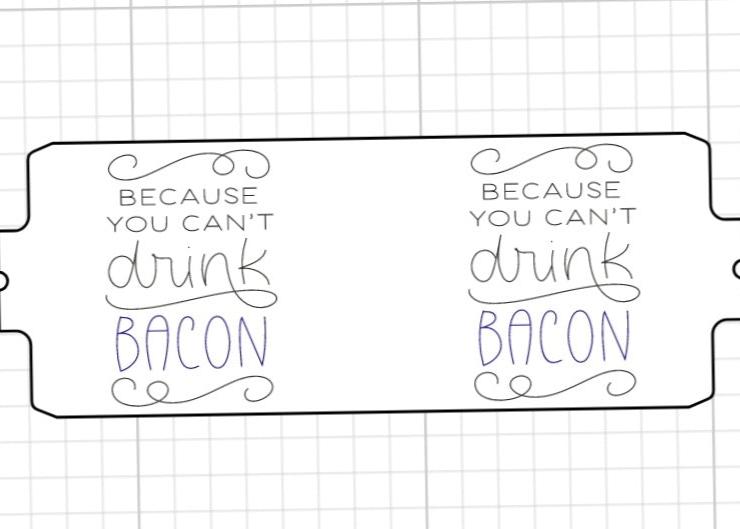 BECAUSE
YOU CAN'T
drink
BACON
BECAUSE
YOU CAN'T
drink
BACON